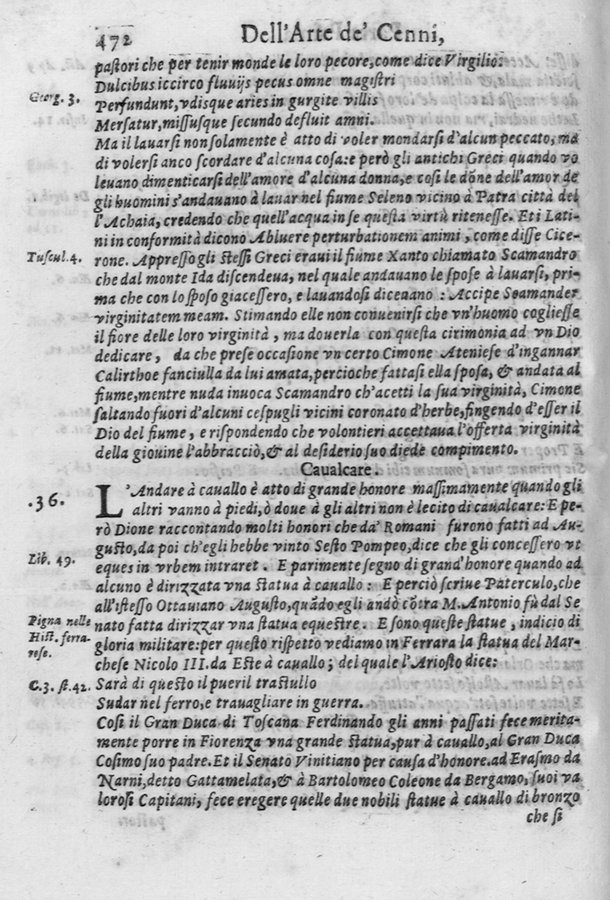 472 Dell'Arte de' Cenni,
pastori che per tenir monde le loro pecore, come dice Virgilio:
Georg. 3. Dulcibus iccirco fluuijs pecus omne magistri
Perfundunt, vdisque aries in gurgite villis
Mersatur, missusque secundo defluit amni.
Ma il lauarsi non solamente è atto di voler mondarsi d'alcun peccato, ma
di volersi anco scordare d'alcuna cosa: e però gli antichi Greci quando vo
leuano dimenticarsi dell'amore d'alcuna donna, e cosi le dōne dell'amor de
gli huomini s'andauano à lauar nel fiume Seleno vicino à Patra città del
l'Achaia, credendo che quell'acqua in se questa virtù ritenesse. Et i Lati-
ni in conformità dicono Abluere perturbationem animi, come disse Cice-
Tuscul. 4. rone. Appresso gli stessi Greci eraui il fiume Xanto chiamato Scamandro
che dal monte Ida discendeua, nel quale andauano le spose à lauarsi, pri-
ma che con lo sposo giacessero, e lauandosi diceuano: Accipe Scamander
virginitatem meam. Stimando elle non conuenirsi che vn'huomo cogliesse
il fiore delle loro virginità, ma douerla con questa cirimonia ad vn Dio
dedicare, da che prese occasione vn certo Cimone Ateniese d'ingannar
Calirthoe fanciulla da lui amata, percioche fattasi ella sposa, & andata al
fiume, mentre nuda inuoca Scamandro ch'acetti la sua virginità, Cimone
saltando fuori d'alcuni cespugli vicini coronato d'herbe, fingendo d'esser il
Dio del fiume, e rispondendo che volontieri accettaua l'offerta virginità
della giouine l'abbracciò, & al desiderio suo diede compimento.
Caualcare.
.36. L'Andare à cauallo è atto di grande honore massimamente quando gli
altri vanno à piedi, ò doue à gli altri non è lecito di caualcare: E pe-
rò Dione raccontando molti honori che da' Romani furono fatti ad Au-
gusto, da poi ch'egli hebbe vinto Sesto Pompeo, dice che gli concessero vt
Lib. 49. eques in vrbem intraret. E parimente segno di grand'honore quando ad
alcuno è dirizzata vna statua à cauallo: E perciò scriue Paterculo, che
all'istesso Ottauiano Augusto, quādo egli andò cōtra M. Antonio fù dal Se
Pigna nelle nato fatta dirizzar vna statua equestre. E sono queste statue, indicio di
Hist. ferra- gloria militare: per questo rispetto vediamo in Ferrara la statua del Mar-
rese. chese Nicolo III. da Este à cauallo; del quale l'Ariosto dice:
C. 3. st. 42. Sarà di questo il pueril trastullo
Sudar nel ferro, e trauagliare in guerra.
Cosi il Gran Duca di Toscana Ferdinando gli anni passati fece merita-
mente porre in Fiorenza vna grande statua, pur à cauallo, al Gran Duca
Cosimo suo padre. Et il Senato Vinitiano per causa d'honore. ad Erasmo da
Narni, detto Gattamelata, & à Bartolomeo Coleone da Bergamo, suoi va
lorosi Capitani, fece eregere quelle due nobili statue à cauallo di bronzo
che si